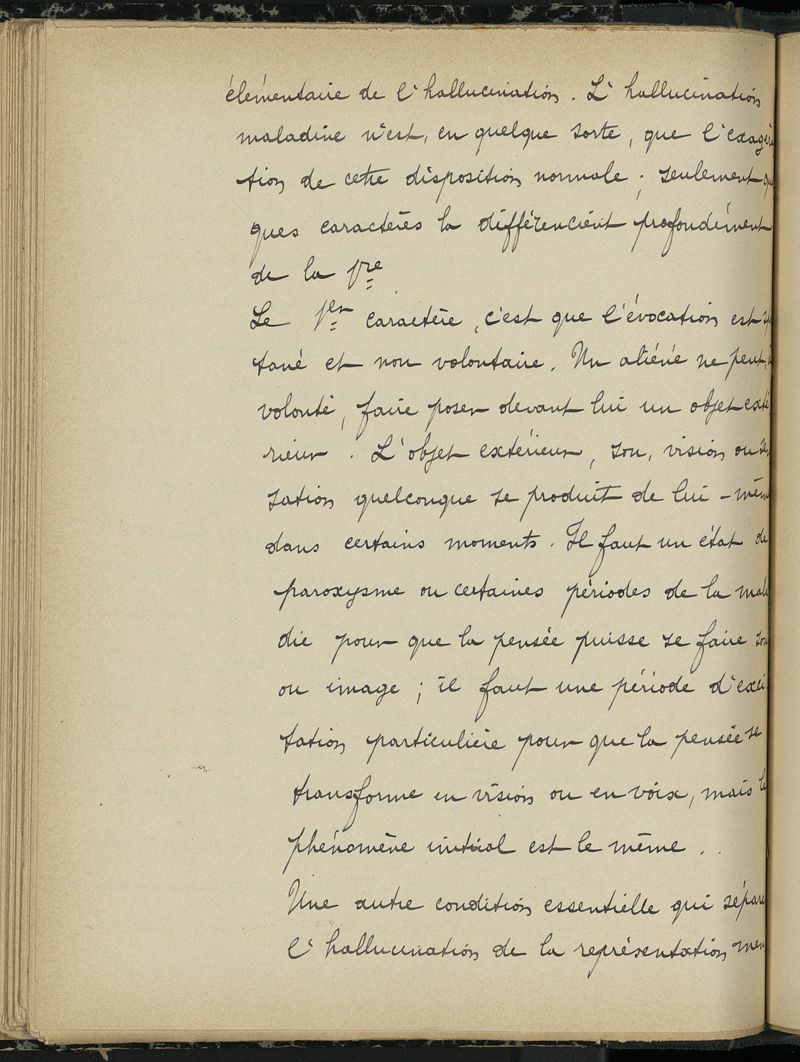 élémentaire de l'hallucination. L'hallucination
maladive n'est, en quelque sorte, que l'exagéra
tion de cette disposition normale ; seulement
ques caractères la différencient profondément
de la 1re
Le 1er caractère, c'est que l'évocation est
tané et non volontaire. Un aliéné ne peut, à
volonté, faire poser devant lui un objet exté
rieur. L'objet extérieur, son, vision ou sen
sation quelconque se produit de lui-même
dans certains moments. Il faut un état de
paroxysme ou certaines périodes de la mala
die pour que la pensée puisse se faire son
ou image ; il faut une période d'exci
tation particulière pour que la pensée se
transforme en vision ou en voix, mais le
phénomène initial est le même.
Une autre condition essentielle qui sépare
l'hallucination de la représentation men